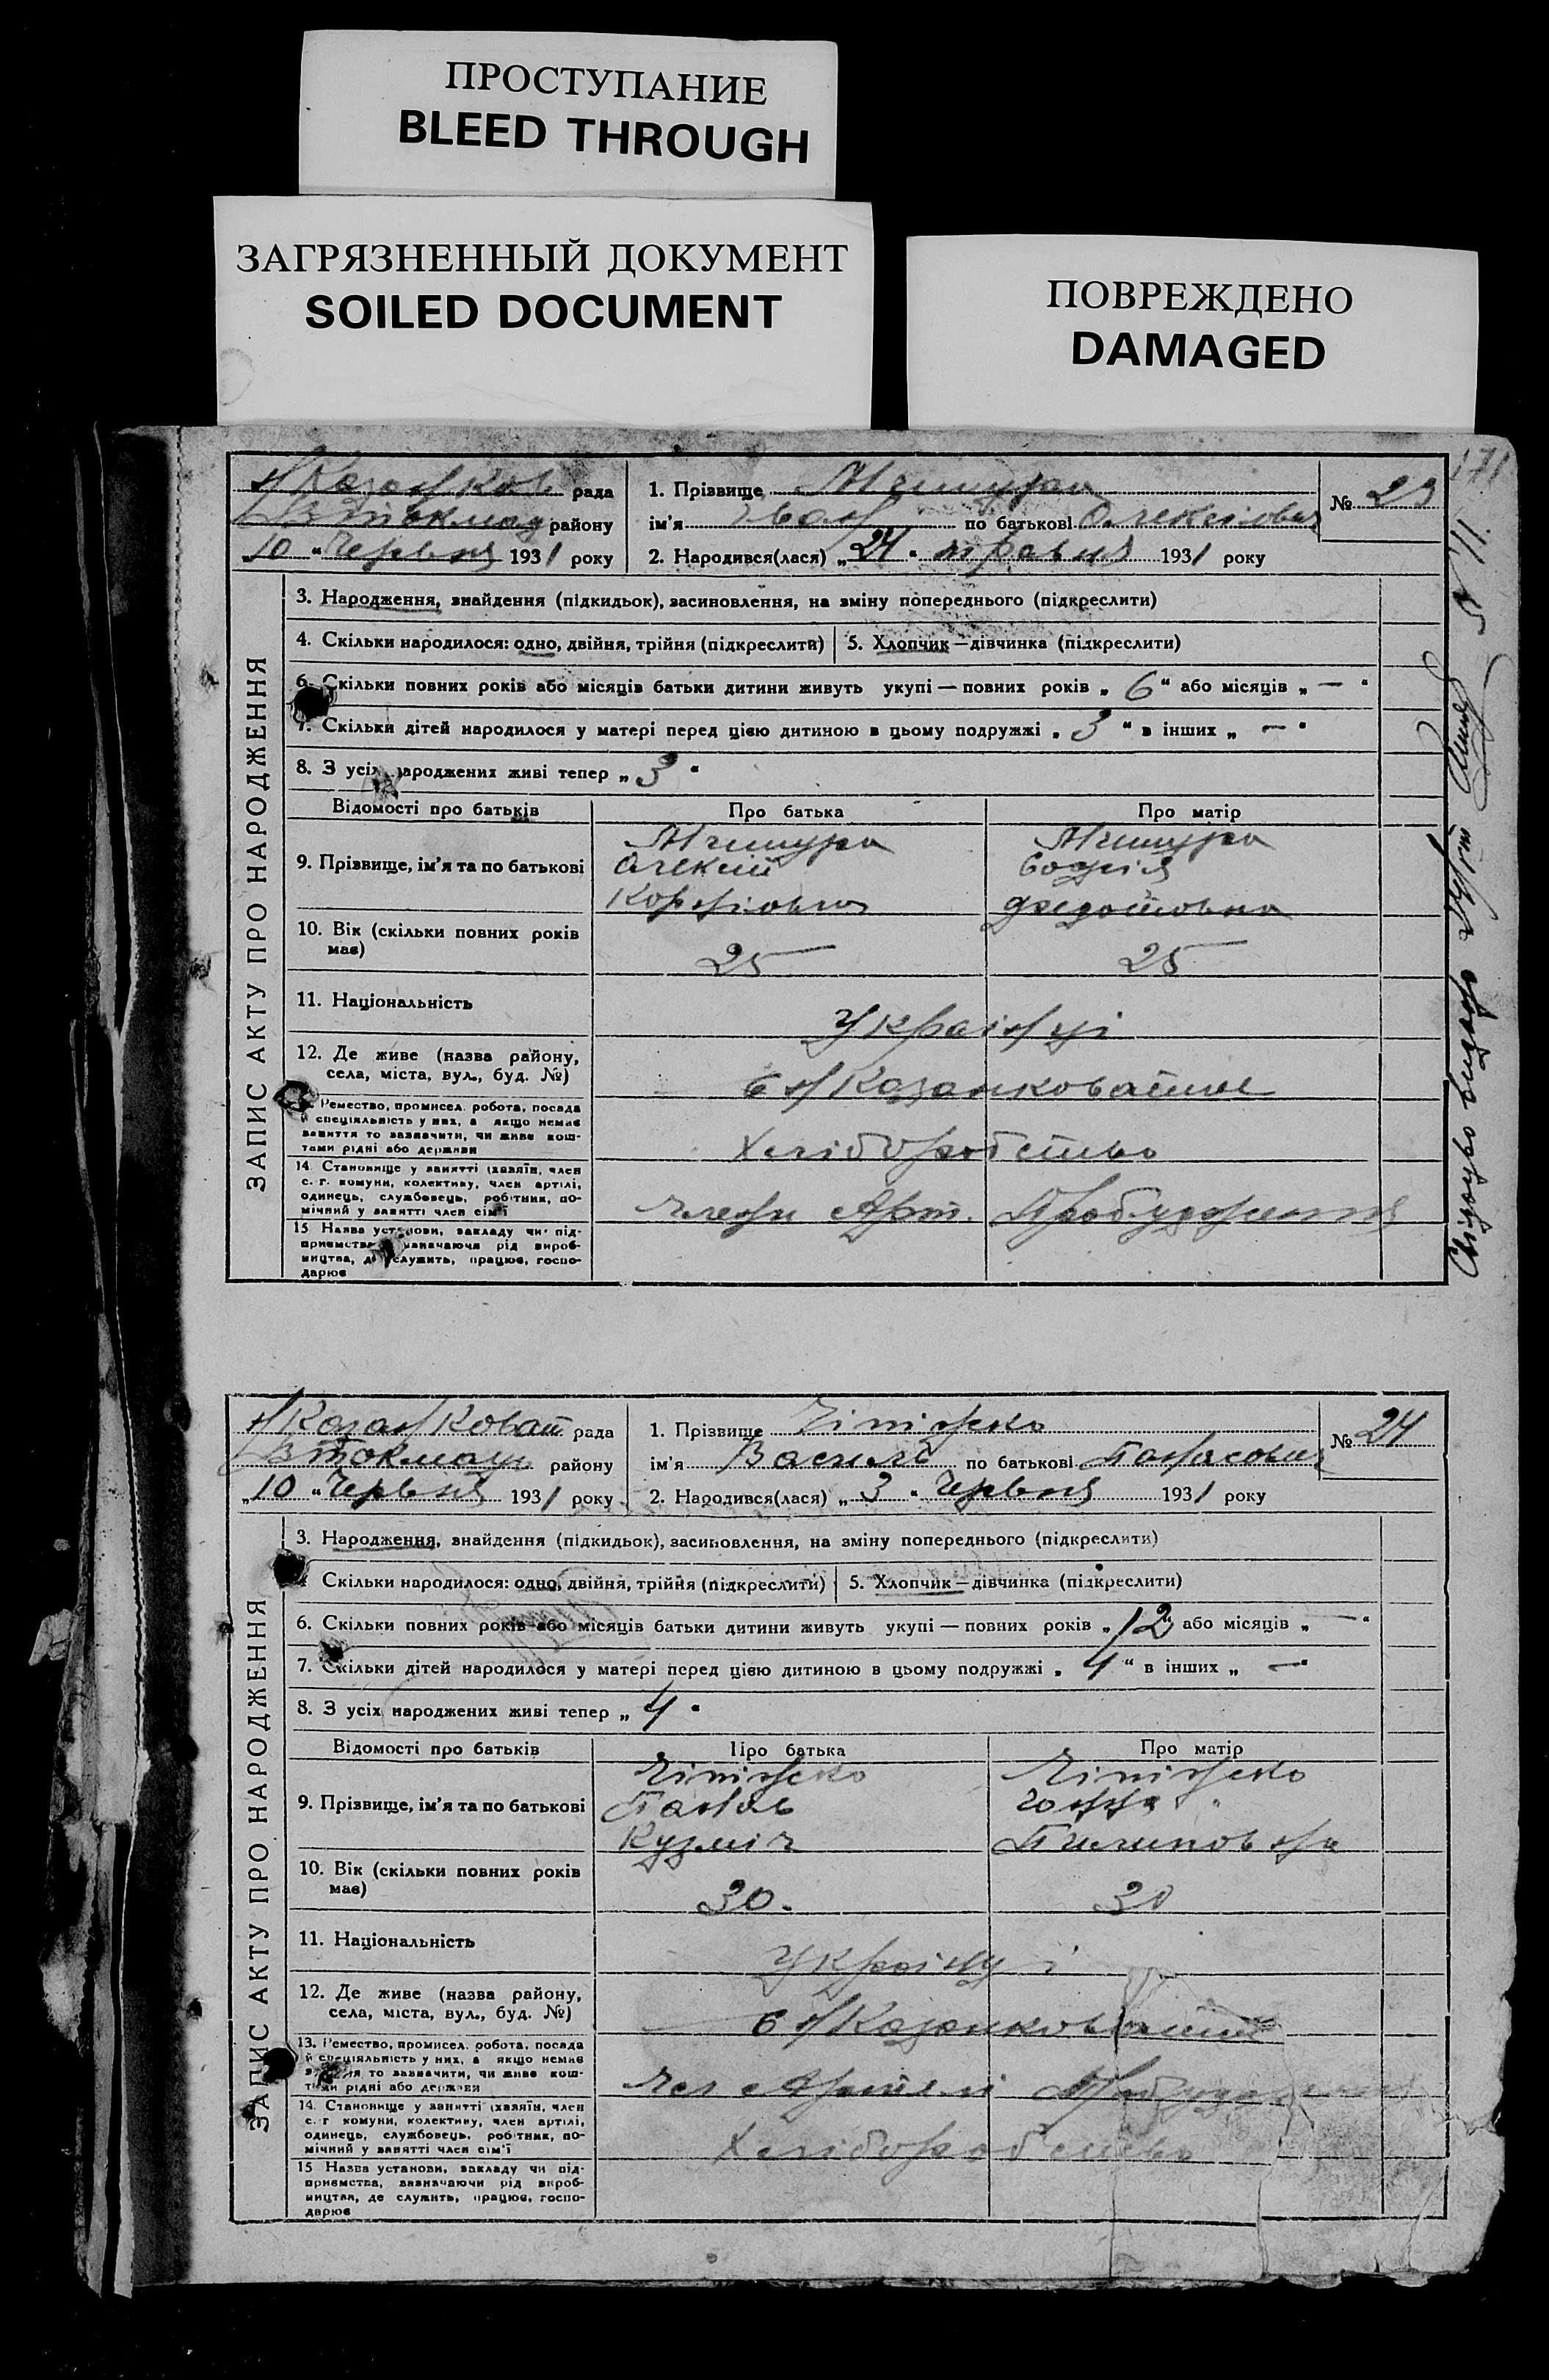 ПРОСТУПАНИЕ
BLEED THROUGH
ЗАГРЯЗНЕННЫЙ ДОКУМЕНТ
SOILED DOCUMENT
ПОВРЕЖДЕНО
DAMAGED
171
рада
району
10 " Червня 1931 року
1. Прізвище
№ 23
ім'я Іван по батькові Олексіович
2. Народився(лася) „ 24 " травня 1931 року
ЗАПИС АКТУ ПРО НАРОДЖЕННЯ
3. Народження, знайдення (підкидьок), засиновлення, на зміну попереднього (підкреслити)
4. Скільки народилося: одно, двійня, трійня (підкреслити)
5. Хлопчик — дівчинка (підкреслити)
6. Скільки повних років або місяців батьки дитини живуть укупі — повних років „ 6 " або місяців „ — "
7. Скільки дітей народилося у матері перед цією дитиною в цьому подружжі „ 3 " в інших „ — "
8. З усіх народжених живі тепер „ 3 "
Відомості про батьків
Про батька
Про матір
9. Прізвище, ім'я та по батькові
Олексій
Федотовна
10. Вік (скільки повних років має)
25
25
11. Національність
Українці
12. Де живе (назва району, села, міста, вул., буд. №)
13. Ремество, промисел. робота, посада й спеціяльність у них, а якщо немає заняття то зазначити, чи живе коштами рідні або держави
Хліборобство
14. Становище у занятті (хазяїн, член с.-г. комуни, колективу, член артілі, одинець, службовець, робітник, помічний у занятті член сім'ї
15. Назва установи, закладу чи підприємства, зазначаючи рід виробництва, де служить, працює, господарює
рада
району
„ 10 " Червня 1931 року
1. Прізвище
№ 24
ім'я Василь по батькові Панасович
2. Народився(лася) „ 3 " Червня 1931 року
ЗАПИС АКТУ ПРО НАРОДЖЕННЯ
3. Народження, знайдення (підкидьок), засиновлення, на зміну попереднього (підкреслити)
4. Скільки народилося: одно, двійня, трійня (підкреслити)
5. Хлопчик — дівчинка (підкреслити)
6. Скільки повних років або місяців батьки дитини живуть укупі — повних років „ 12 " або місяців „ — "
7. Скільки дітей народилося у матері перед цією дитиною в цьому подружжі „ 4 " в інших „ — "
8. З усіх народжених живі тепер „ 4 "
Відомості про батьків
Про батька
Про матір
9. Прізвище, ім'я та по батькові
Кузміч
10. Вік (скільки повних років має)
30.
30
11. Національність
Українці
12. Де живе (назва району, села, міста, вул., буд. №)
13. Ремество, промисел. робота, посада й спеціяльність у них, а якщо немає заняття то зазначити, чи живе коштами рідні або держави
14. Становище у занятті (хазяїн, член с.-г. комуни, колективу, член артілі, одинець, службовець, робітник, помічний у занятті член сім'ї
Хліборобство
15. Назва установи, закладу чи підприємства, зазначаючи рід виробництва, де служить, працює, господарює